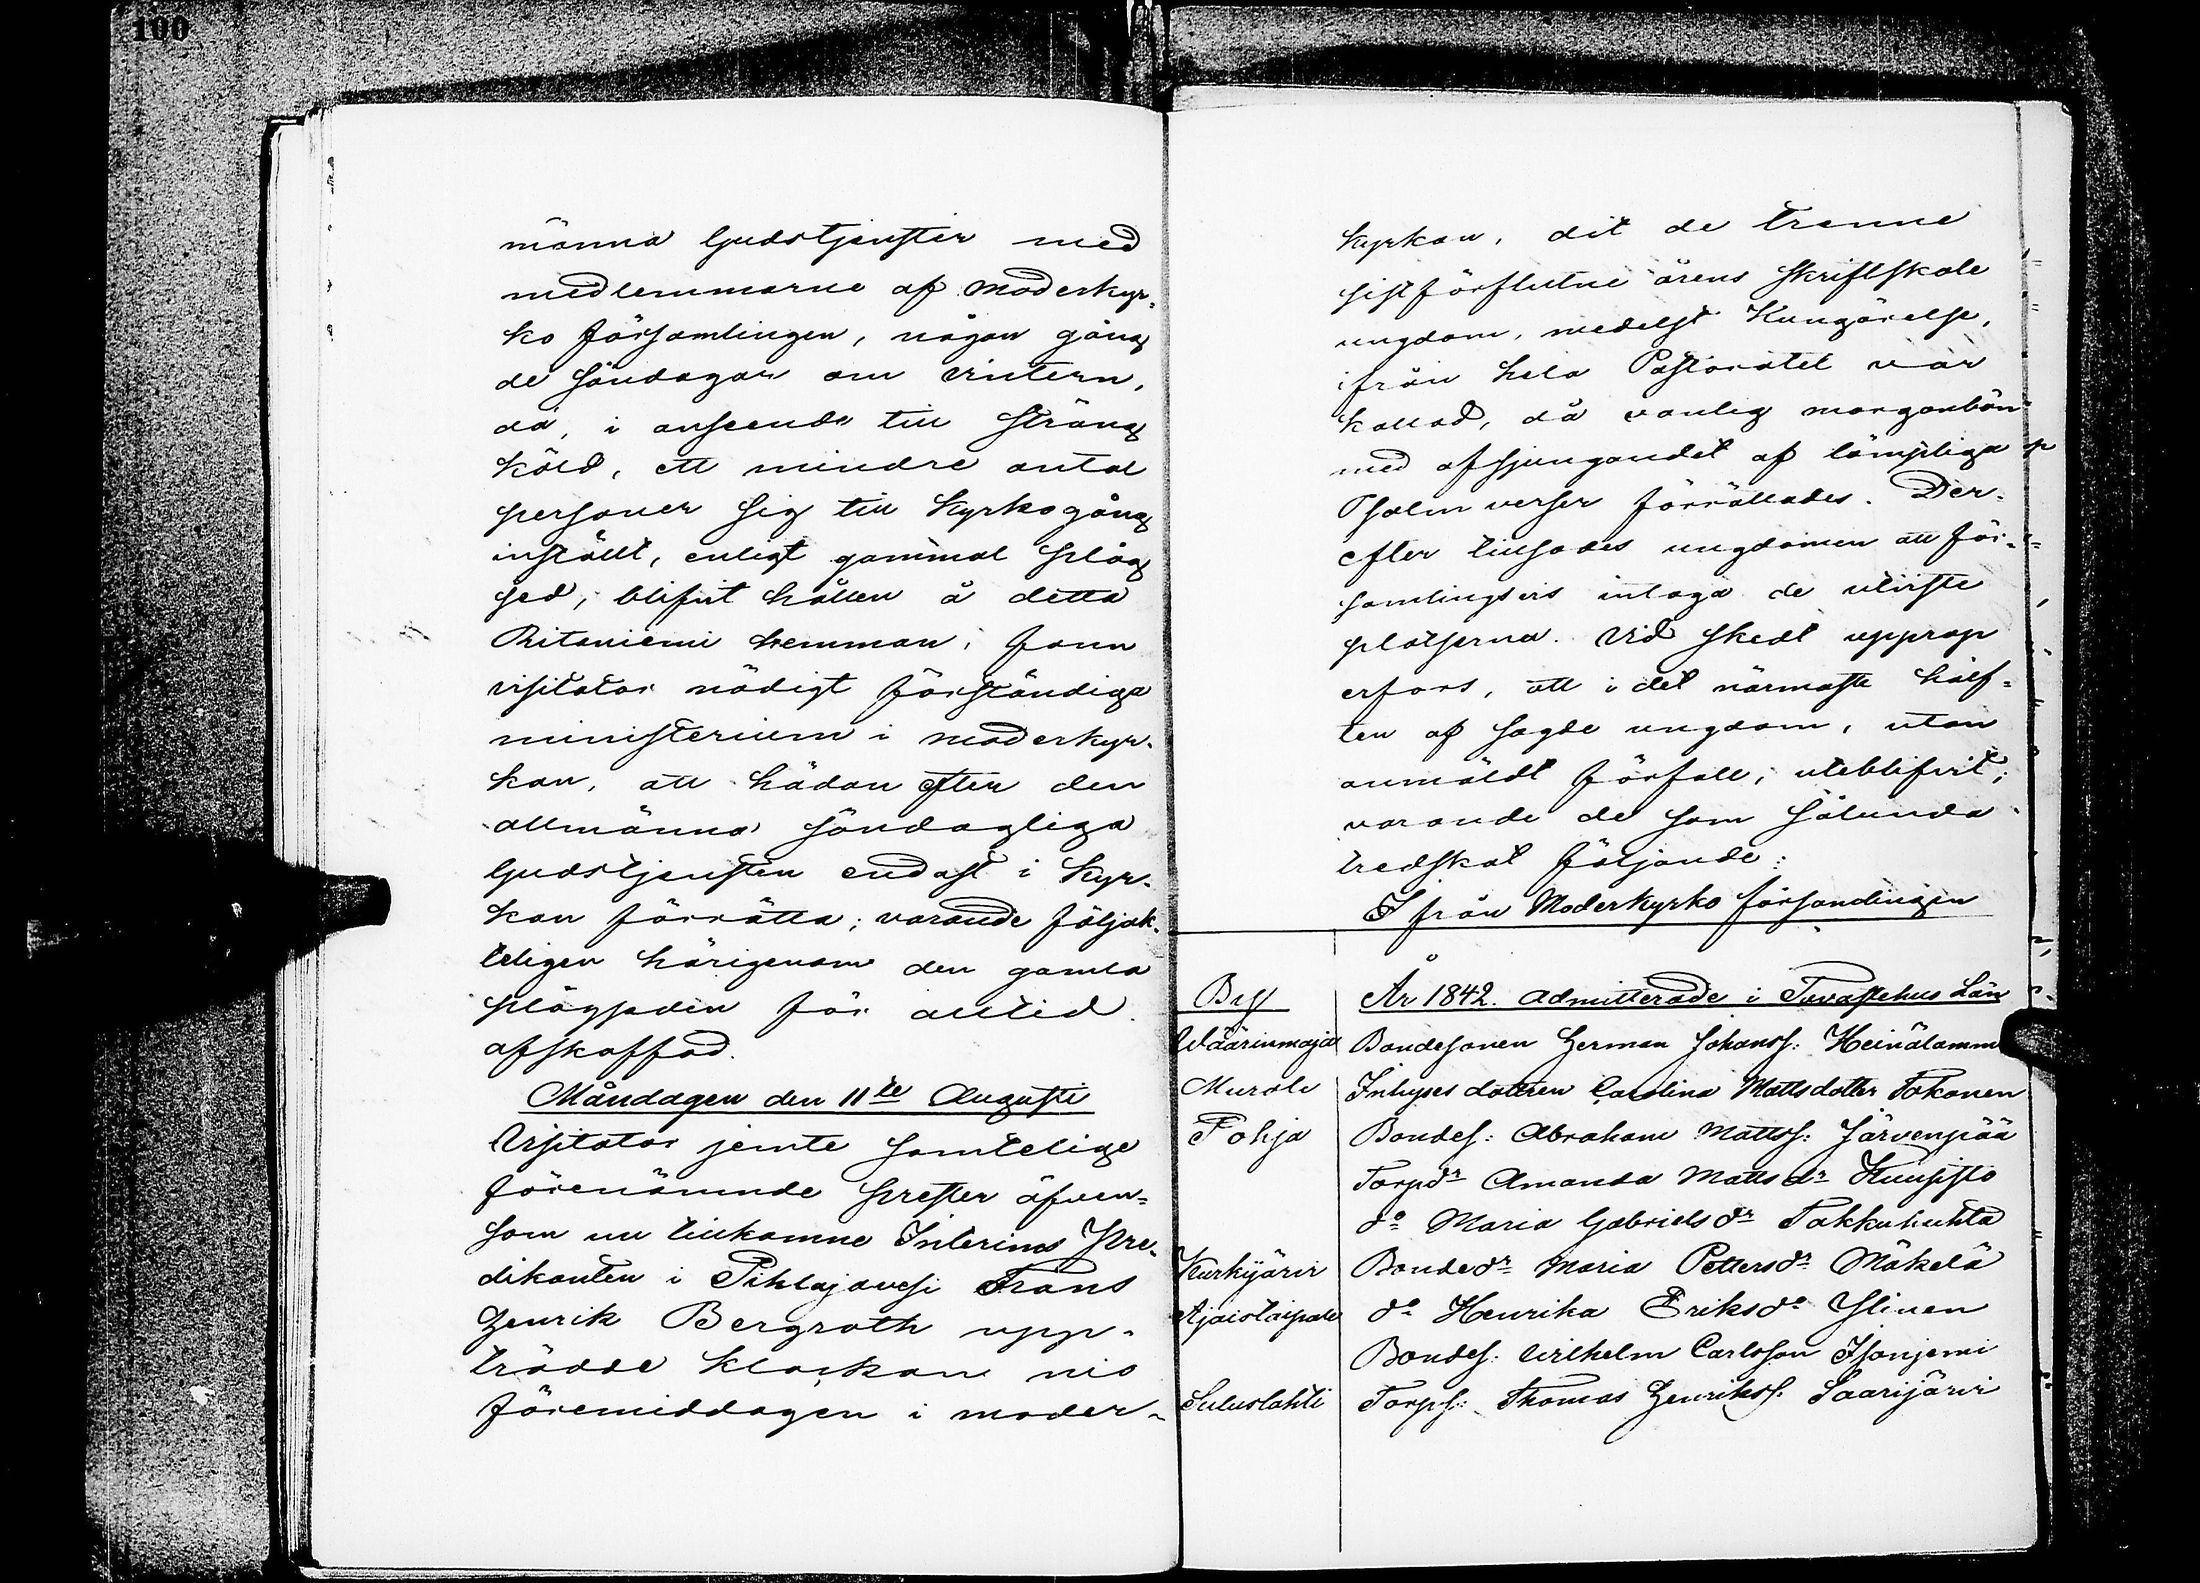 100
männa Gudstjenster med
medlemmarne af Moderkyr-
ko församlingen, någon gång
de Söndagar om vintern,
då, i anseende till sträng
köld, ett mindre antal
personer sig till Kyrkogång
inställt, enligt gammal plåg
sed, blifvit hållen å detta
Ritaniemi hemman; fann
visitator nödigt förständiga
ministerium i moderkyr-
kan, att hädan efter den
allmänna söndagliga
Gudstjensten endast i Kyr-
kan förrätta; varande följak-
teligen härigenom den gamla
plägseden för alltid
afskaffad.
Måndagen den 11te Augusti
Visitator jemte samtelige
förenämnde prester äfven-
som nu tillkomne Interims Pre-
dikanten i Pihlajavesi Frans
Henrik Bergroth upp-
trädde klockan nio
förmiddagen i moder-
kyrkan, dit de trenne
sistförflutne årens skriftskole
ungdom, medelst Kungörelse,
ifrån hela Pastoratet var
kallad, då vanlig morgonbön
med afsjungandet af lämpliga
Psalm verser förrättades. Der-
efter tillsades ungdomen att för-
samlingsvis intaga de utviste
platserna. Vid skedt upprop
erfors, att i det närmaste hälf-
ten af sagde ungdom, utan
anmäldt förfall, uteblifvit;
varande de som sålunda
tredskat följande:
Ifrån Moderkyrko församlingen
By År 1842. admitterade i Tavastehus Län
Wäärinmaja Bondesonen Herman Johanss: Heinälammi
Murole Inhyses dottren Carolina Mattsdotter Tokonen
Pohja Bondes: Abraham Mattss: Järvenpää
Torpdr Amanda Matts dr Kuusisto
do Maria Gabriels dr Takkuhuhta
Kurkijärvi Bondedr Maria Petters dr Mäkelä
Ajaistaipale do Henrika Eriksdr Ylinen
Bondes: Wilhelm Carlsson Isoniemi
Suluslahti Torps: Thomas Henrikss: Saarijärvi